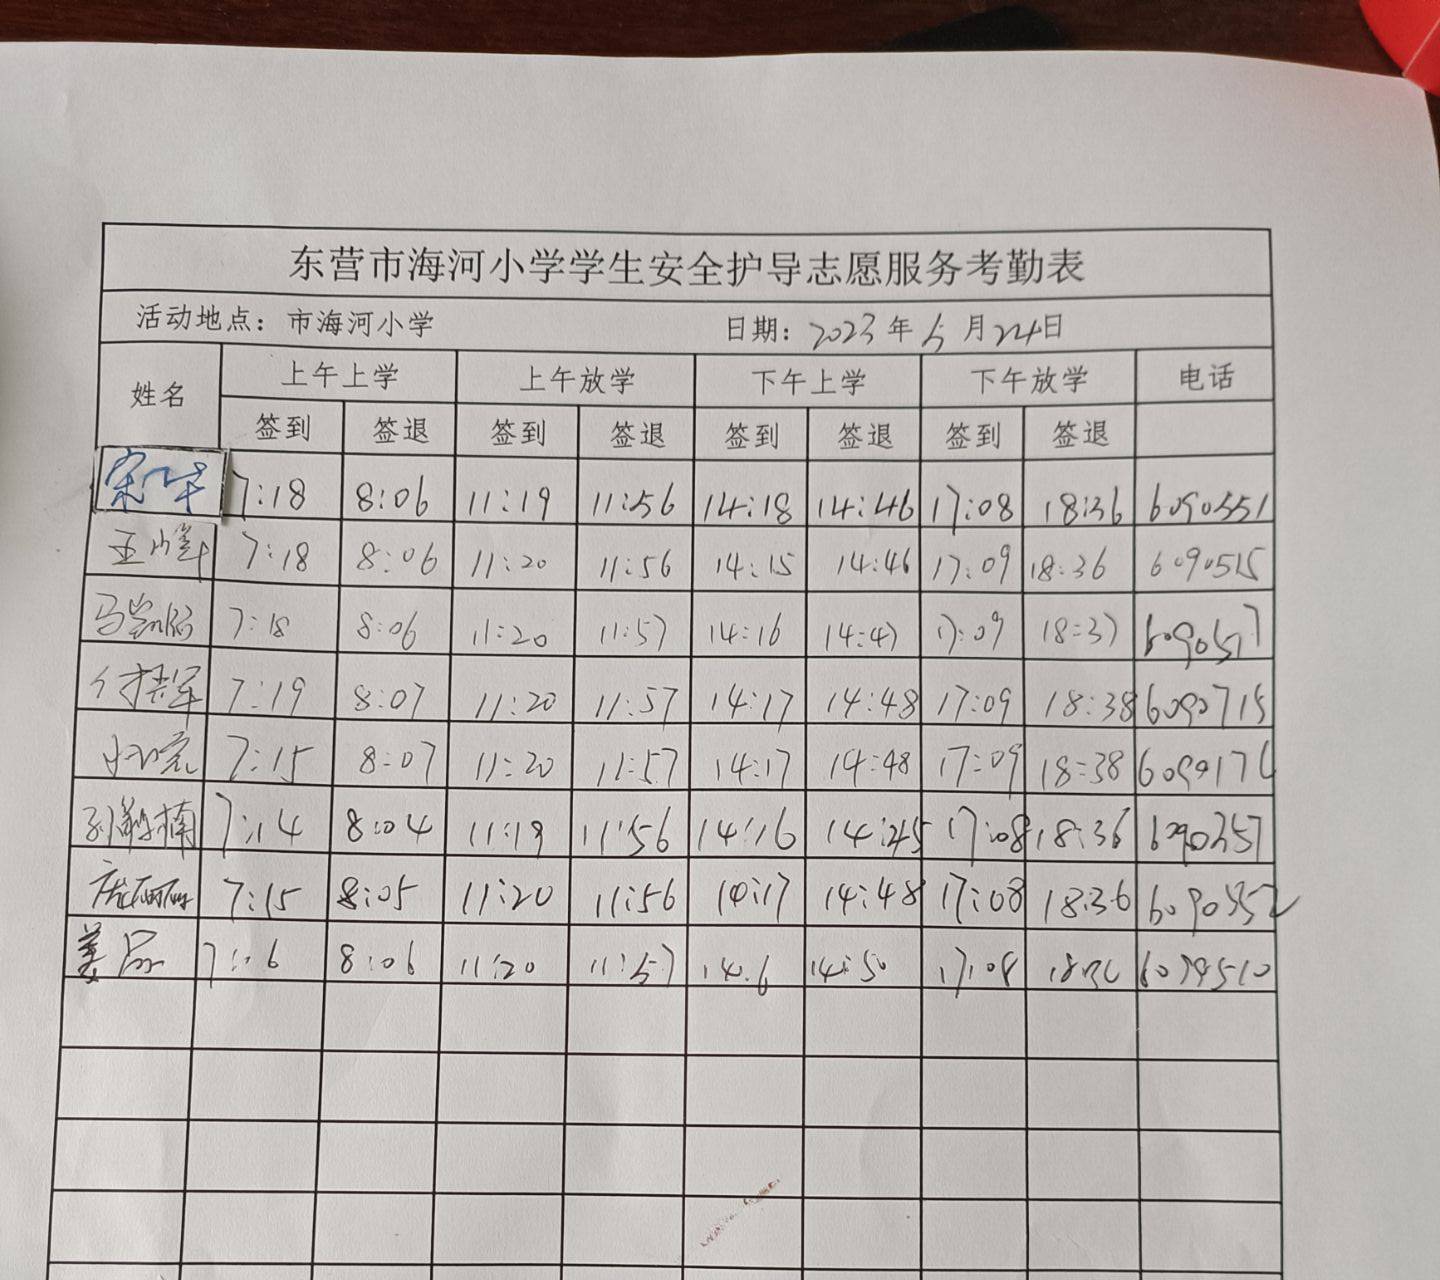 东营市海河小学学生安全护导志愿服务考勤表
活动地点：市海河小学 日期：2023年5月24日
姓名 上午上学 上午放学 下午上学 下午放学 电话
签到 签退 签到 签退 签到 签退 签到 签退
7:18 8:06 11:19 11:56 14:18 14:46 17:08 18:36 6090551
7:18 8:06 11:20 11:56 14:15 14:46 17:09 18:36 6090515
7:18 8:06 11:20 11:57 14:16 14:47 17:09 18:37 6090577
7:19 8:07 11:20 11:57 14:17 14:48 17:09 18:38 6090715
7:15 8:07 11:20 11:57 14:17 14:48 17:09 18:38
7:14 8:04 11:19 11:56 14:16 14:45 17:08 18:36 6090357
7:15 8:05 11:20 11:56 14:17 14:48 17:08 18:36 6090552
姜 7:16 8:06 11:20 11:57 14:50 17:08